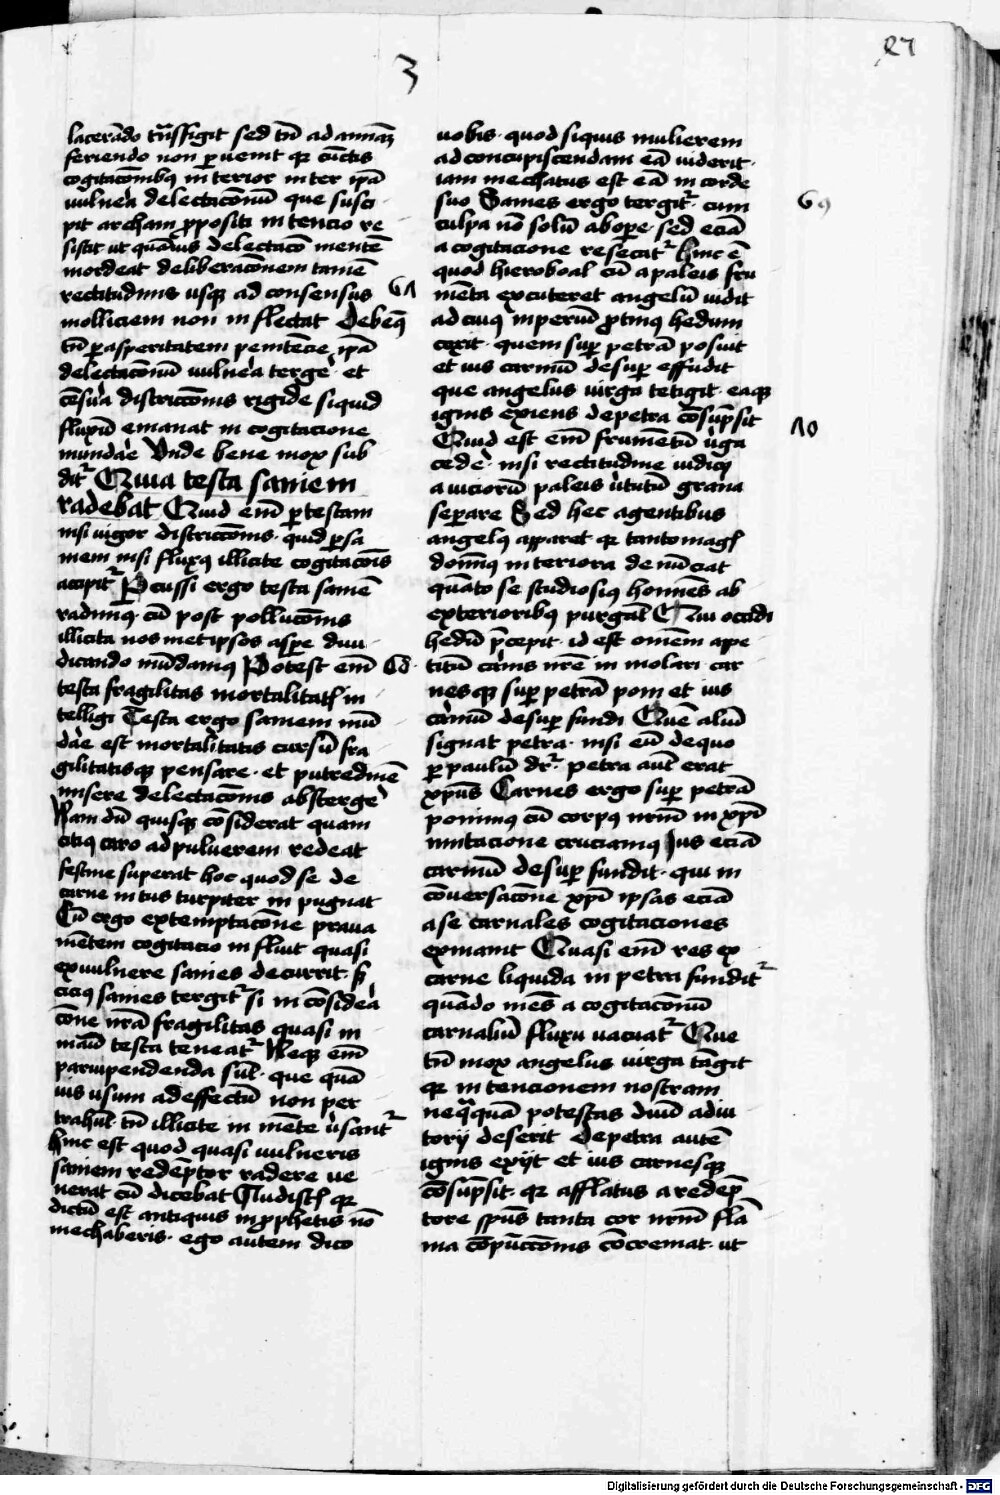 3
27
lacerādo trāssfigit sed tn̄ ad animaȝ
feriendo non ꝑuenit qꝛ cūctis
cogitacōnibꝫ interior inter ip̄a
uulneꝛa delectacōnū que susci
pit archam ꝓpositi intencio re
sistit ut quāuis delectaco mentē
mordeat deliberacōnem tamē
rectitudinis usqꝫ ad consensus
molliciem non inflectat Debeꝫ
tn̄ ꝑ asperitatem penitēcie ip̄a
delectacōnū uulneꝛa tergeꝛe et
cēsuꝛa districcōnis rigide siquid
fluxū emanat in cogitacione
mundaꝛe Unde bene mox sub
dit᷑ Quia testa saniem
radebat Quid em̄ ꝑ testam
nisi uigor districcōnis· quid ꝑ sa
niem nisi fluxꝰ illicite cogitacōis
accipit᷑ Pcussi ergo testa saniē
radimꝰ· cū post pollucōnis
illicita nosmetipsos aspe diu
dicando mūdamꝰ Potest em̄
testa fragilitas mortalitatꝭ in
telligi Testa ergo saniem mū
daꝛe est mortalitatis cursū fra
gilitatisqꝫ pensare· et putredinē
misere delectacōnis abstergeꝛe
Nam dū quisqꝫ cōsiderat quam
citiꝰ caro ad puluerem redeat
festine superat hoc quod se de
carne intus turpiter inpugnat
Cū ergo ex temptacōne praua
mētem cogitacio influit quasi
ex uulnere sanies decurrit· ꝫ
cicius sanies tergit᷑ si in cōsideꝛa
cōne nr̄a fragilitas quasi in
manū testa teneat᷑ Neqꝫ em̄
paruipendenda sūt· que quā
uis usum ad effectū non per
trahūt· tn̄ illicite in mēte uersant᷑
hinc est quod quasi uulneris
saniem redēptor radere ue
nerat cū dicebat Audistꝭ qꝛ
dictū est antiquis in ꝓphetis nō
mechaberis· ego autem dico
uobis· quod siquis mulierem
ad concupiscendam eā uiderit·
iam mechatus est eā in corde
suo Sanies ergo tergit᷑· cum
culpa nō solū ab ope· sed eciā
a cogitacione resecat᷑ hinc ē
quod hieroboal cū a paleis fru
mēta excuteret angelū uidit
ad cuiꝰ inperiū ꝓtinꝰ hedum
coxit· quem suꝑ petrā posuit
et ius carniū desuꝑ effudit
que angelus uirga tetigit· eaqꝫ
ignis exiens de petra cōsūpsit
Quid est em̄ frumētū uirga
cedeꝛe· nisi rectitudine iudicij
a uiciorū paleis uirtutū grana
seꝑare Sed hec agentibus
angelꝰ apparet qꝛ tanto magꝭ
domīnꝰ interiora denūciat
quāto se studiosiꝰ homīnēs ab
exterioribꝰ purgāt Qui occidi
hedū p̄cepit· id est omēm ape
titū carnis nr̄e immolari· car
nesqꝫ suꝑ petrā poni et ius
carniū desuꝑ fundi Quē aliū
signat petra· nisi eū de quo
ꝑ paulū dr᷑· petra aut̄ erat
xp̄us Carnes ergo suꝑ petrā
ponimꝰ cū corpꝰ nr̄m in xp̄i
imitacione cruciamꝰ Ius eciā
carniū desuꝑ fundit· qui in
cōuersacōne xp̄i ipsas eciā
a se carnales cogitaciones
exinanit Quasi em̄ res ex
carne liquida in petra fundit᷑
quādo mēs a cogitacōnū
carnaliū fluxu uacuat᷑ Que
tn̄ mox angelus uirga tāgit
qꝛ intencionem nostram
neqͣquā potestas diuini adiu
torij deserit De petra autē
ignis exijt et ius carnesqꝫ
cōsūpsit· qꝛ afflatus a redēp
tore sp̄us tanta cor nr̄m flā
ma cōpūccōnis cōcremat· ut
Digitalisierung gefördert durch die Deutsche Forschungsgemeinschaft - DFG